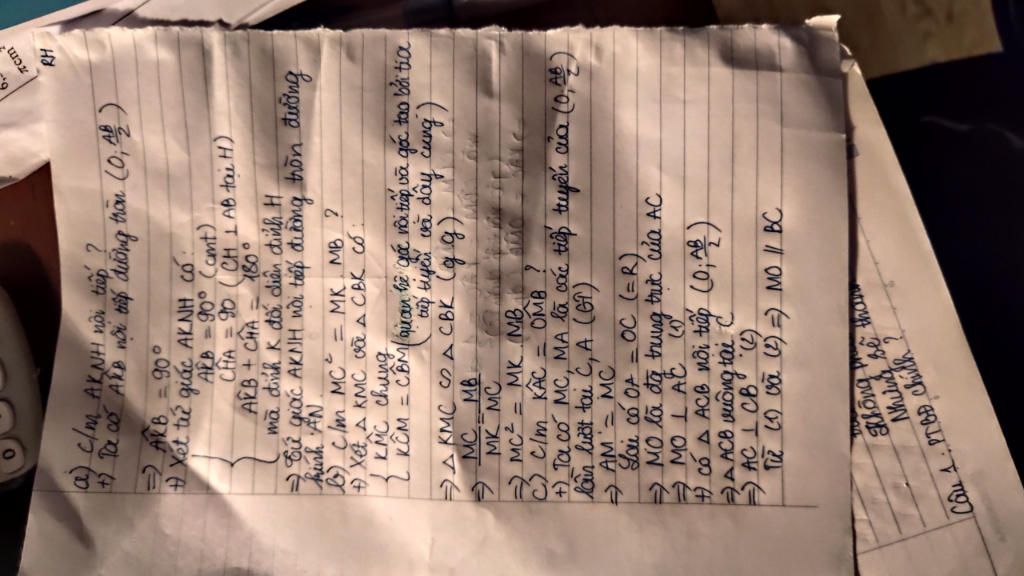 a) C/m AKNH nội tiếp ?
+) Ta có AKB nội tiếp đường tròn (O, AB/2)
=> AKB = 90°
+) Xét tứ giác AKNH có:
AKB = 90° (cmt)
CHA = 90 (CH ⊥ AB tại H)
AKB + CHA = 180°
mà đỉnh K đối diện đỉnh H
=> Tứ giác AKNH nội tiếp đường tròn đường
kính AN
b) C/m MC² = MK MB ?
+) Xét △ KMC và △ CBK có:
KMC chung
KCM = CBM ( góc nội tiếp và góc tạo bởi tia
tiếp tuyến và dây cung)
=> △ KMC ∽ △ CBK (g.g)
=> MC/MK = MB/MC
=> MC² = MK MB
c) C/m KAC = OMB ?
+) Ta có MC, MA là các tiếp tuyến của (O, AB/2)
lần lượt tại C, A (GT)
=> AM = MC
Lại có OA = OC (=R)
=> MO là đg trung trực của AC
=> MO ⊥ AC (1)
+) có △ ACB nội tiếp (O, AB/2)
=> △ ACB vuông tại C
=> AC ⊥ CB (2)
Từ (1) và (2) => MO // BC
RH
πcm
Không phải
Nhưng bề
chính ?
Câu 1. PTBĐ